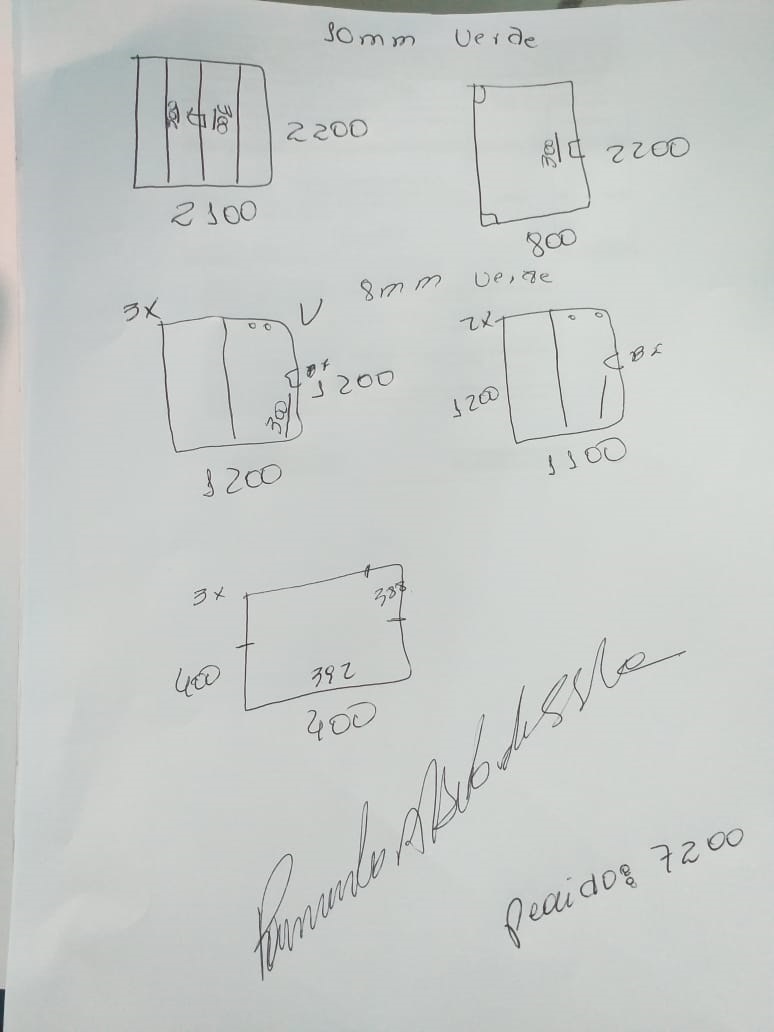 10mm Verde
300
2200
2100
300
2200
800
8mm Verde
3x
V
1200
300
1200
2x
1200
1100
3x
388
400
392
400
Pedido: 7200